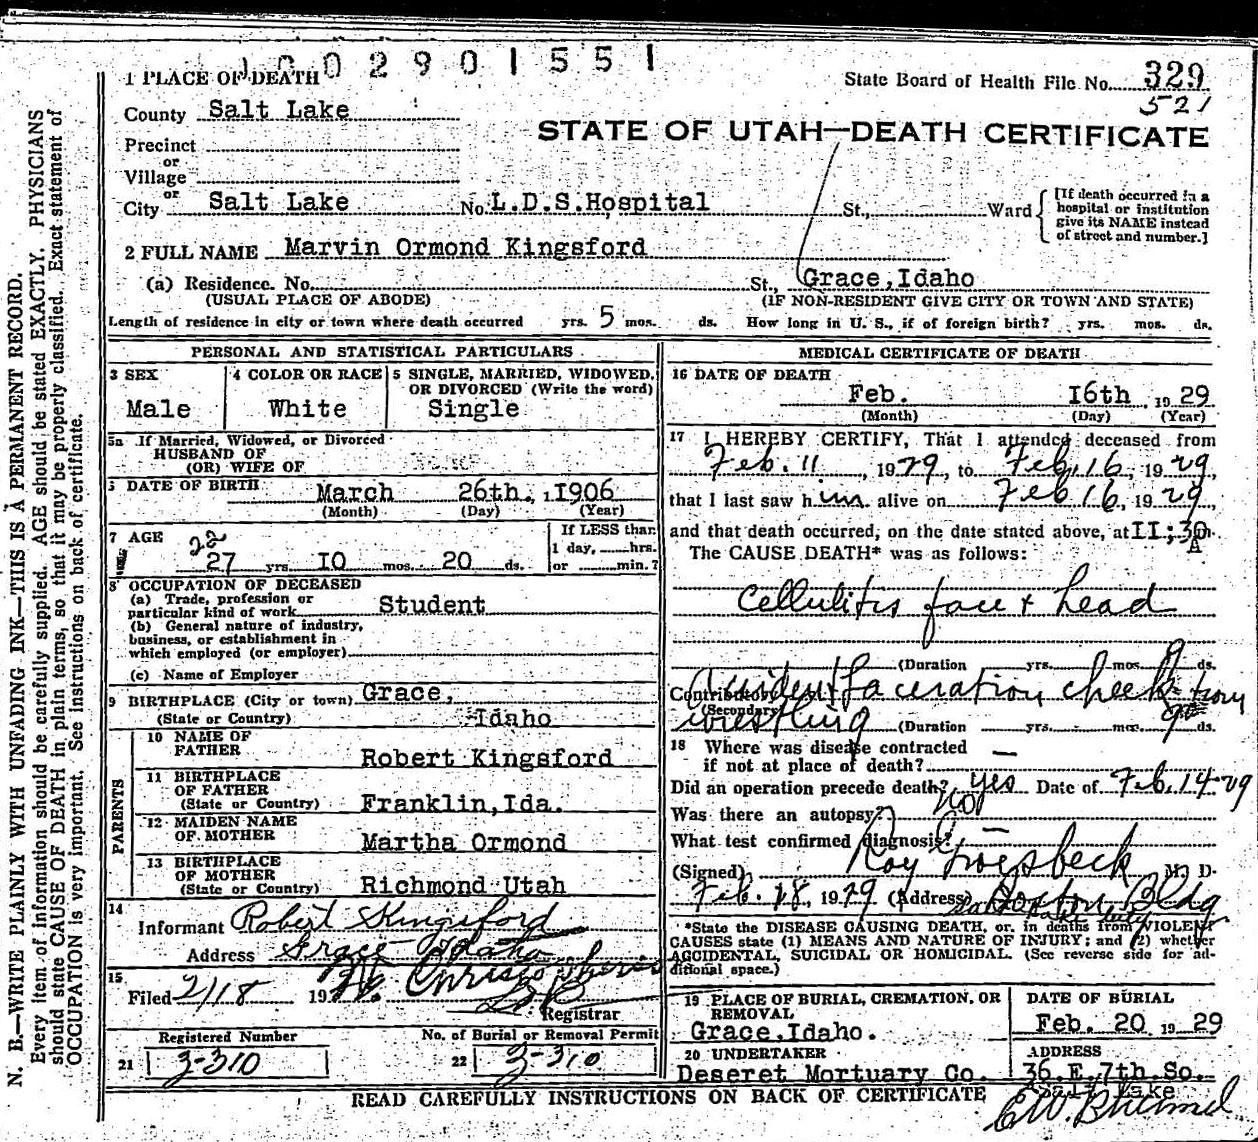 1 0 0 2 9 0 1 5 5 1
1 PLACE OF DEATH
State Board of Health File No. 329
521
County Salt Lake
STATE OF UTAH—DEATH CERTIFICATE
Precinct
or
Village
or
City Salt Lake No. L.D.S.Hospital St., Ward
[If death occurred in a hospital or institution give its NAME instead of street and number.]
2 FULL NAME Marvin Ormond Kingsford
(a) Residence. No. St., Grace,Idaho
(USUAL PLACE OF ABODE) (IF NON-RESIDENT GIVE CITY OR TOWN AND STATE)
Length of residence in city or town where death occurred yrs. 5 mos. ds. How long in U. S., if of foreign birth? yrs. mos. ds.
PERSONAL AND STATISTICAL PARTICULARS
3 SEX Male
4 COLOR OR RACE White
5 SINGLE, MARRIED, WIDOWED, OR DIVORCED (Write the word) Single
5a If Married, Widowed, or Divorced
HUSBAND OF
(OR) WIFE OF
DATE OF BIRTH March 26th, 1906
(Month) (Day) (Year)
7 AGE
22
27 yrs. 10 mos. 20 ds.
If LESS than
1 day, hrs.
or min.?
8 OCCUPATION OF DECEASED
(a) Trade, profession or
particular kind of work Student
(b) General nature of industry,
business, or establishment in
which employed (or employer)
(c) Name of Employer
9 BIRTHPLACE (City or town) Grace,
(State or Country) Idaho
PARENTS
10 NAME OF
FATHER Robert Kingsford
11 BIRTHPLACE
OF FATHER
(State or Country) Franklin,Ida.
12 MAIDEN NAME
OF MOTHER Martha Ormond
13 BIRTHPLACE
OF MOTHER
(State or Country) Richmond Utah
14
Informant Robert Kingsford
Address Grace Idaho
15
Filed 2/18 19
Registrar
Registered Number
21 3-310
No. of Burial or Removal Permit
22 3-310
MEDICAL CERTIFICATE OF DEATH
16 DATE OF DEATH
Feb. 16th, 1929
(Month) (Day) (Year)
17 I HEREBY CERTIFY, That I attended deceased from
Feb. 11, 1929, to Feb. 16, 1929,
that I last saw him alive on Feb 16, 1929
and that death occurred, on the date stated above, at 11;30 A m.
The CAUSE DEATH* was as follows:
Cellulitis face & head
(Duration yrs. mos. 9 ds.
Contributory Accident laceration cheek from
(Secondary) wrestling (Duration yrs. mos. 9 ds.
18 Where was disease contracted
if not at place of death? —
Did an operation precede death? yes Date of Feb. 14-29
Was there an autopsy? no
What test confirmed diagnosis? —
(Signed) Roy Groesbeck M. D.
Feb. 18, 1929 (Address) Boston Bldg
Salt Lake City
*State the DISEASE CAUSING DEATH, or, in deaths from VIOLENT
CAUSES state (1) MEANS AND NATURE OF INJURY; and (2) whether
ACCIDENTAL, SUICIDAL OR HOMICIDAL. (See reverse side for ad-
ditional space.)
19 PLACE OF BURIAL, CREMATION, OR
REMOVAL
Grace,Idaho.
DATE OF BURIAL
Feb. 20 1929
20 UNDERTAKER
Deseret Mortuary Co.
ADDRESS
36.E.7th.So.
Salt Lake
READ CAREFULLY INSTRUCTIONS ON BACK OF CERTIFICATE
N. B.—WRITE PLAINLY WITH UNFADING INK—THIS IS A PERMANENT RECORD.
Every item of information should be carefully supplied. AGE should be stated EXACTLY. PHYSICIANS
should state CAUSE OF DEATH in plain terms, so that it may be properly classified. Exact statement of
OCCUPATION is very important. See instructions on back of certificate.